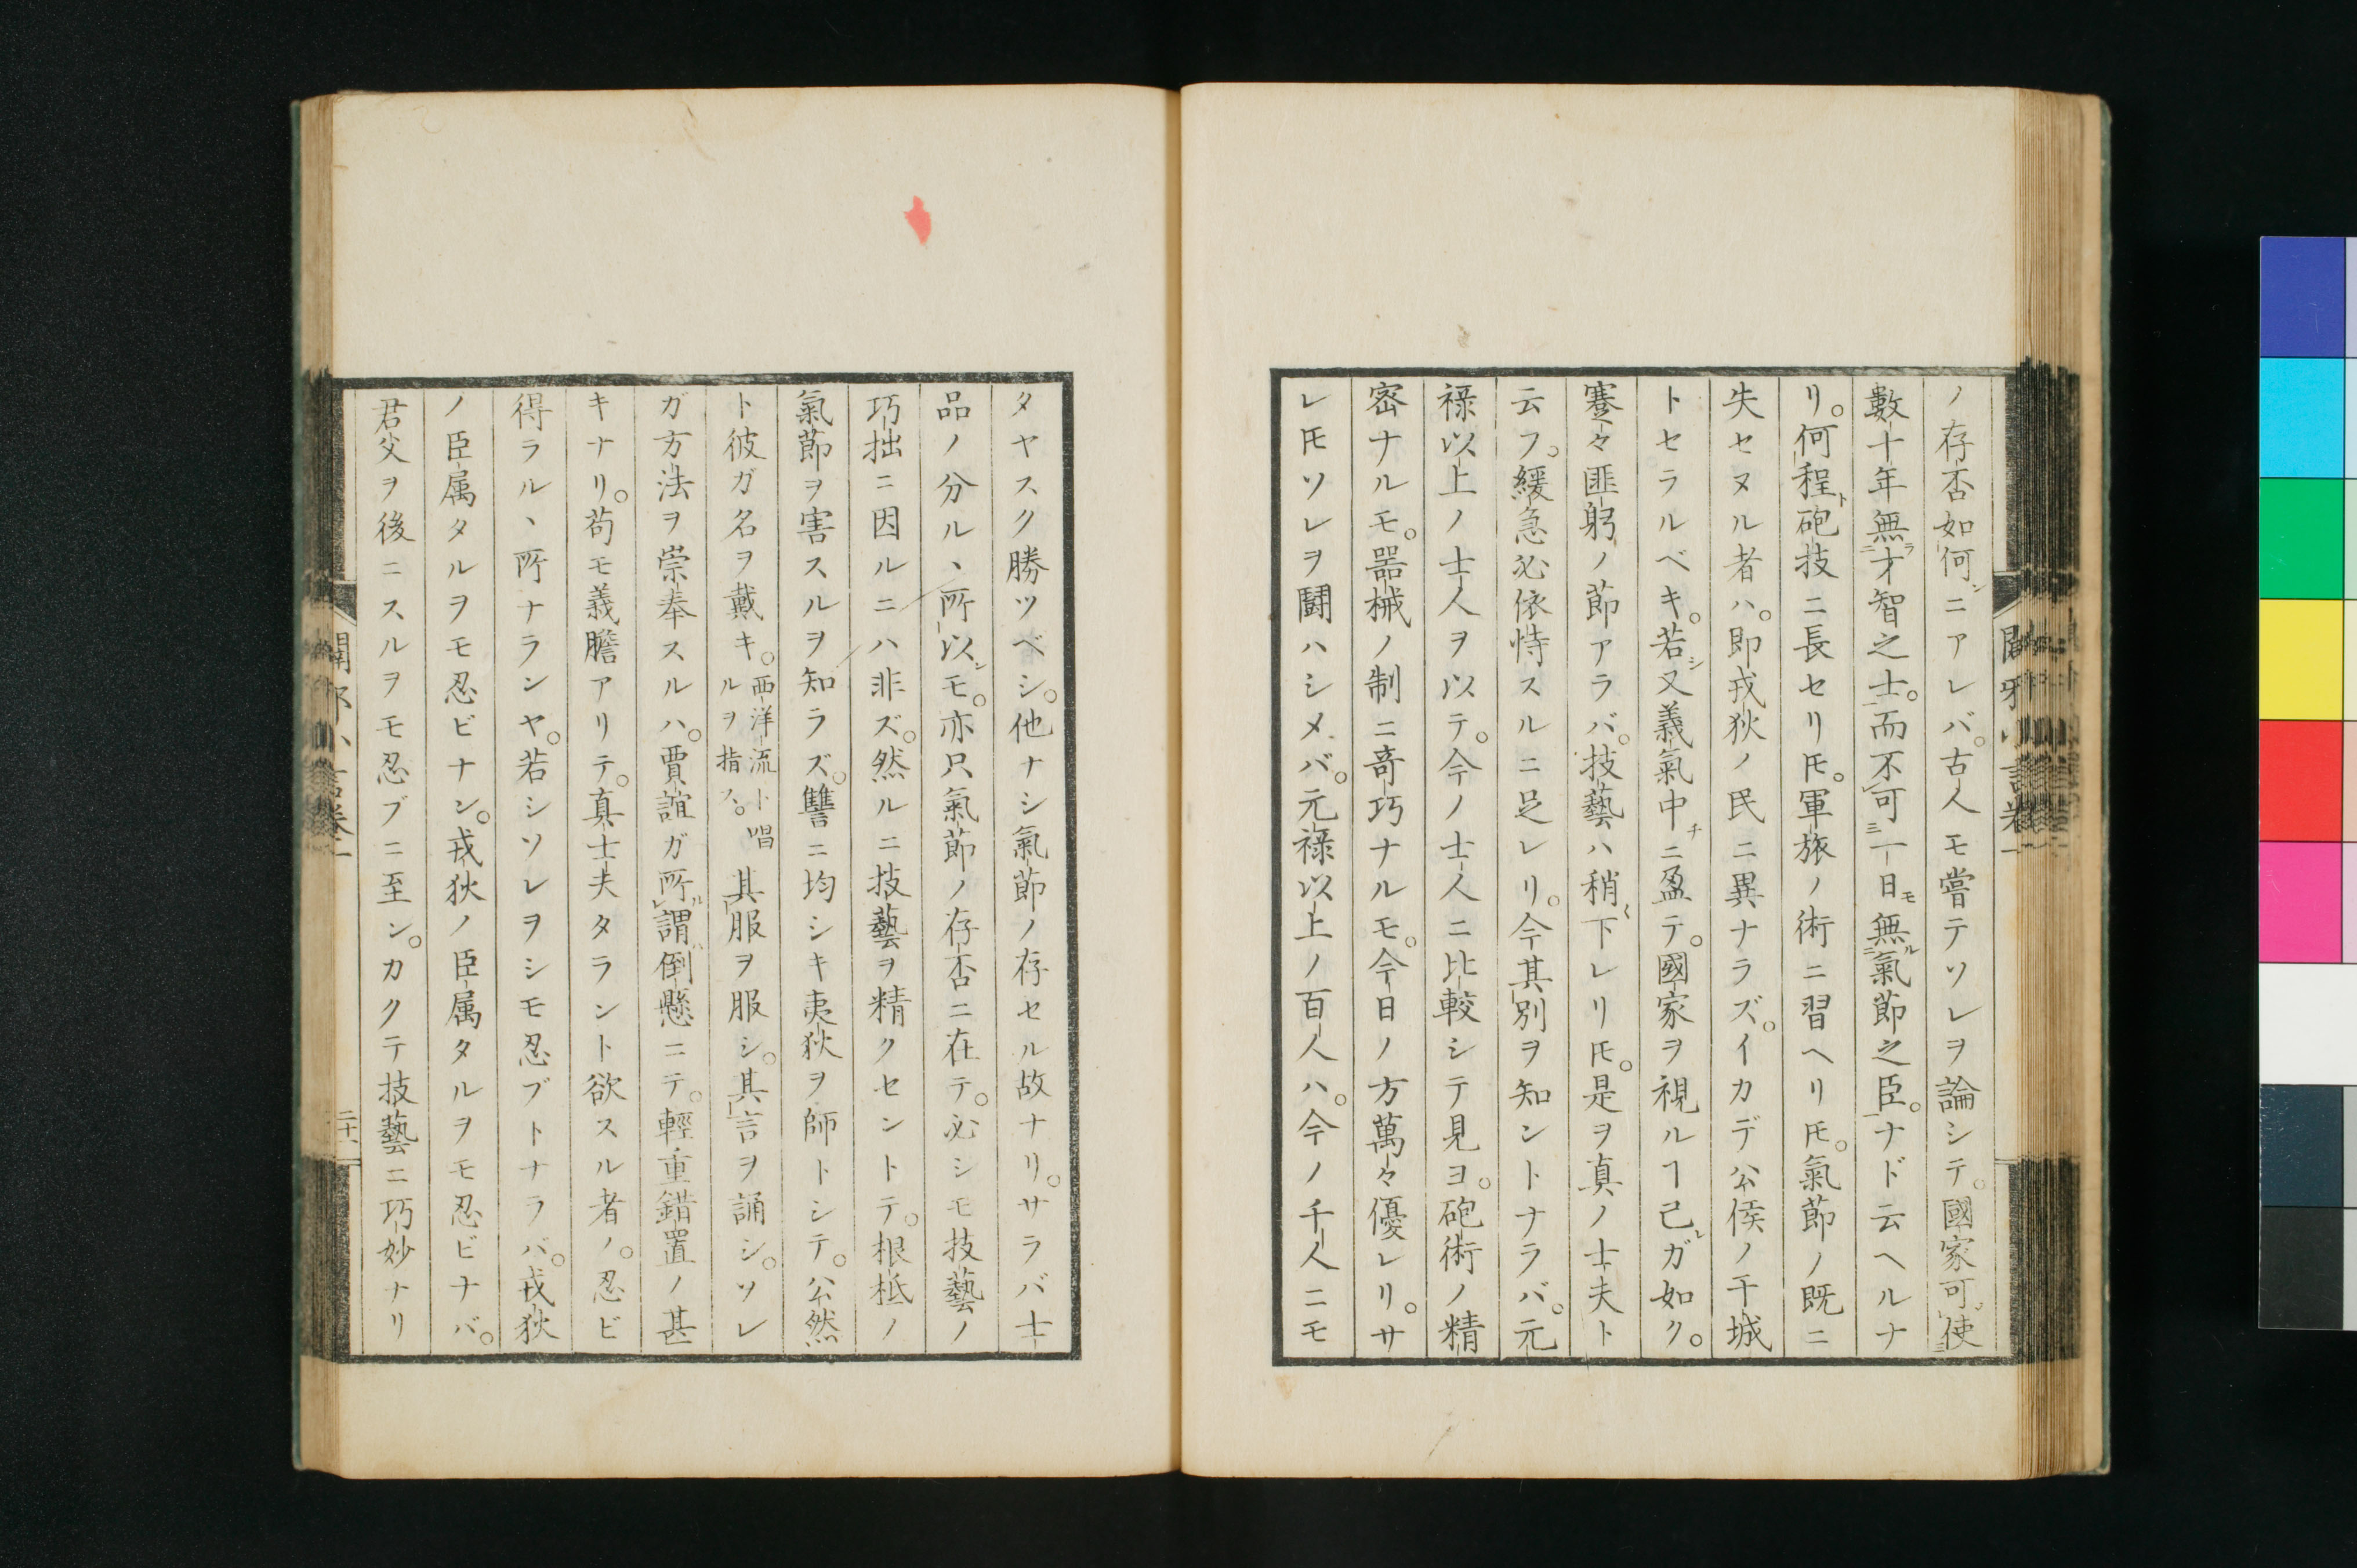 ノ存否如何ニアレバ。古人モ嘗テソレヲ論シテ。國家可使
數十年無才智之士。而不可一日無氣節之臣。ナド云ヘルナ
リ。何程砲技ニ長セリ𪜈。軍旅ノ術ニ習ヘリ𪜈。氣節ノ既ニ
失セヌル者ハ。即戎狄ノ民ニ異ナラズ。イカデ公侯ノ干城
トセラルベキ。若又義氣中ニ盈テ。國家ヲ視ルヿ己ガ如ク。
蹇々匪躬ノ節アラバ。技藝ハ稍下レリ𪜈。是ヲ真ノ士夫ト
云フ。緩急必依恃スルニ足レリ。今其別ヲ知ントナラバ。元
祿以上ノ士人ヲ以テ。今ノ士人ニ比較シテ見ヨ。砲術ノ精
密ナルモ。噐械ノ制ニ奇巧ナルモ。今日ノ方萬々優レリ。サ
レ𪜈ソレヲ鬪ハシメバ。元祿以上ノ百人ハ。今ノ千人ニモ
タヤスク勝ツベシ。他ナシ氣節ノ存セル故ナリ。サラバ士
品ノ分ル、所以モ。亦只氣節ノ存否ニ在テ。必シモ技藝ノ
巧拙ニ因ルニハ非ズ。然ルニ技藝ヲ精クセントテ。根柢ノ
氣節ヲ害スルヲ知ラズ。讐ニ均シキ夷狄ヲ師トシテ。公然
ト彼ガ名ヲ戴キ。西洋流ト唱ルヲ指ス。其服ヲ服シ。其言ヲ誦シ。ソレ
ガ方法ヲ崇奉スルハ。賈誼ガ所謂倒懸ニテ。輕重錯置ノ甚
キナリ。苟モ義膽アリテ。真士夫タラント欲スル者ノ。忍ビ
得ラル、所ナランヤ。若シソレヲシモ忍ブトナラバ。戎狄
ノ臣属タルヲモ忍ビナン。戎狄ノ臣属タルヲモ忍ビナバ。
君父ヲ後ニスルヲモ忍ブニ至ン。カクテ技藝ニ巧妙ナリ